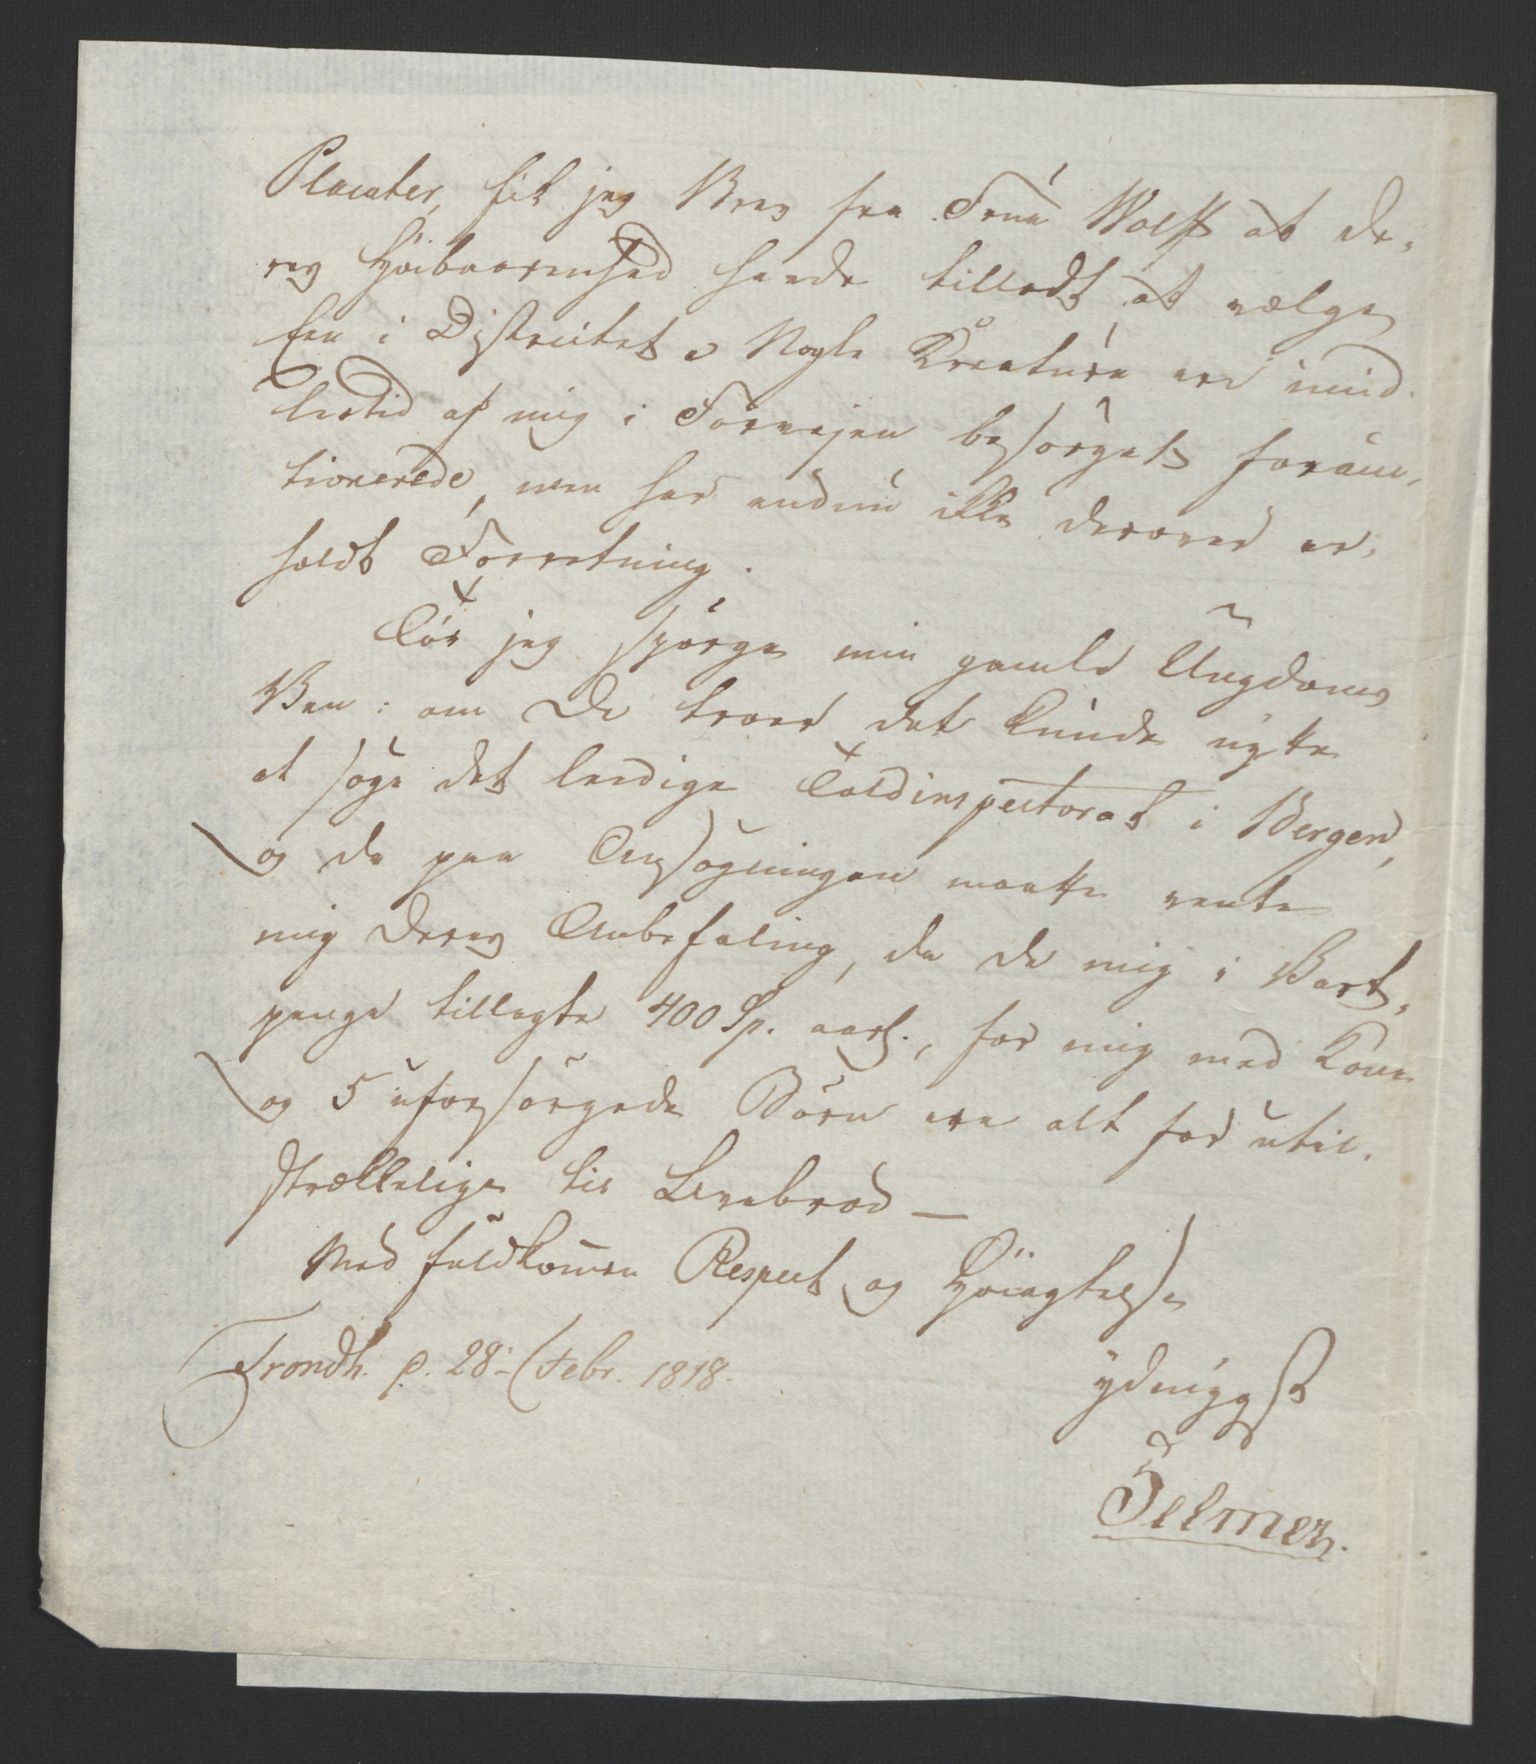 Placater, fik jeg Brev fra Frue Wolff at De-
res Høibaarenhed havde tilladt at vælge
Een i Districtet. Nogle Kreature ere imid-
lertid af mig i Forvejen besørget forauc-
tionerede, men har endnu ikke derover er-
holdt Forretning.
Tør jeg spørge min gamle Ungdoms
Ven: om De troer det kunde nytte
at søge det ledige Toldinspectorat i Bergen,
og da paa Ansøgningen maatte vente
mig Deres Anbefaling, da de mig i Vart-
penge tillagte 400 Sp. aarl., for mig med Kone
og 5 uforsørgede Børn ere alt for util-
strækkelige til Levebrød —
Med fuldkommen Respect og Høiagtelse
Trondh. p. 28 Febr. 1818.
ydmygst
Selmer.